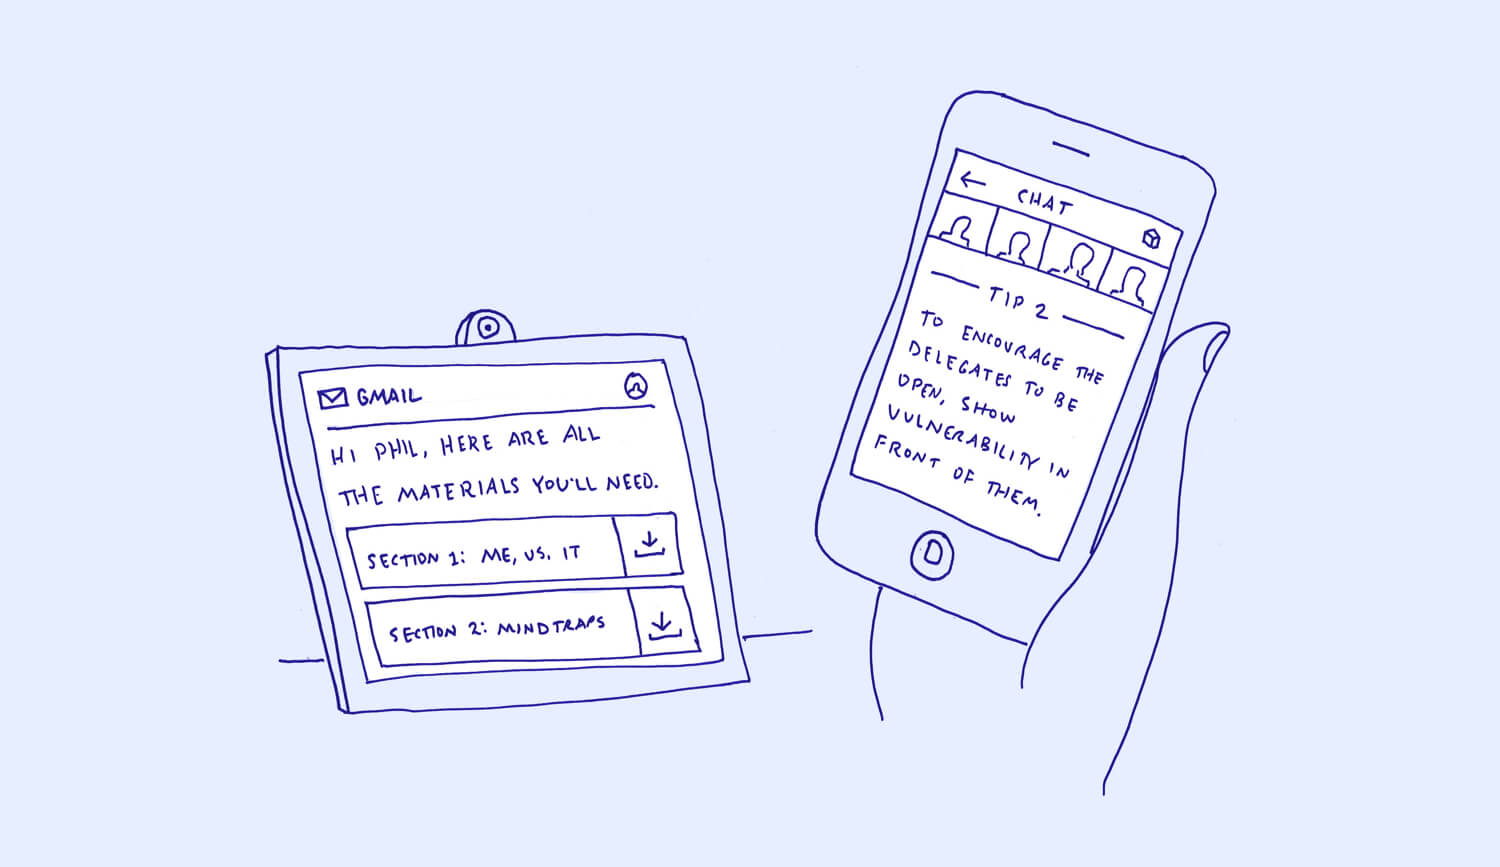 GMAIL
HI PHIL, HERE ARE ALL
THE MATERIALS YOU'LL NEED.
SECTION 1: ME, US, IT
SECTION 2: MINDTRAPS
CHAT
TIP 2
TO ENCOURAGE THE
DELEGATES TO BE
OPEN, SHOW
VULNERABILITY IN
FRONT OF THEM.